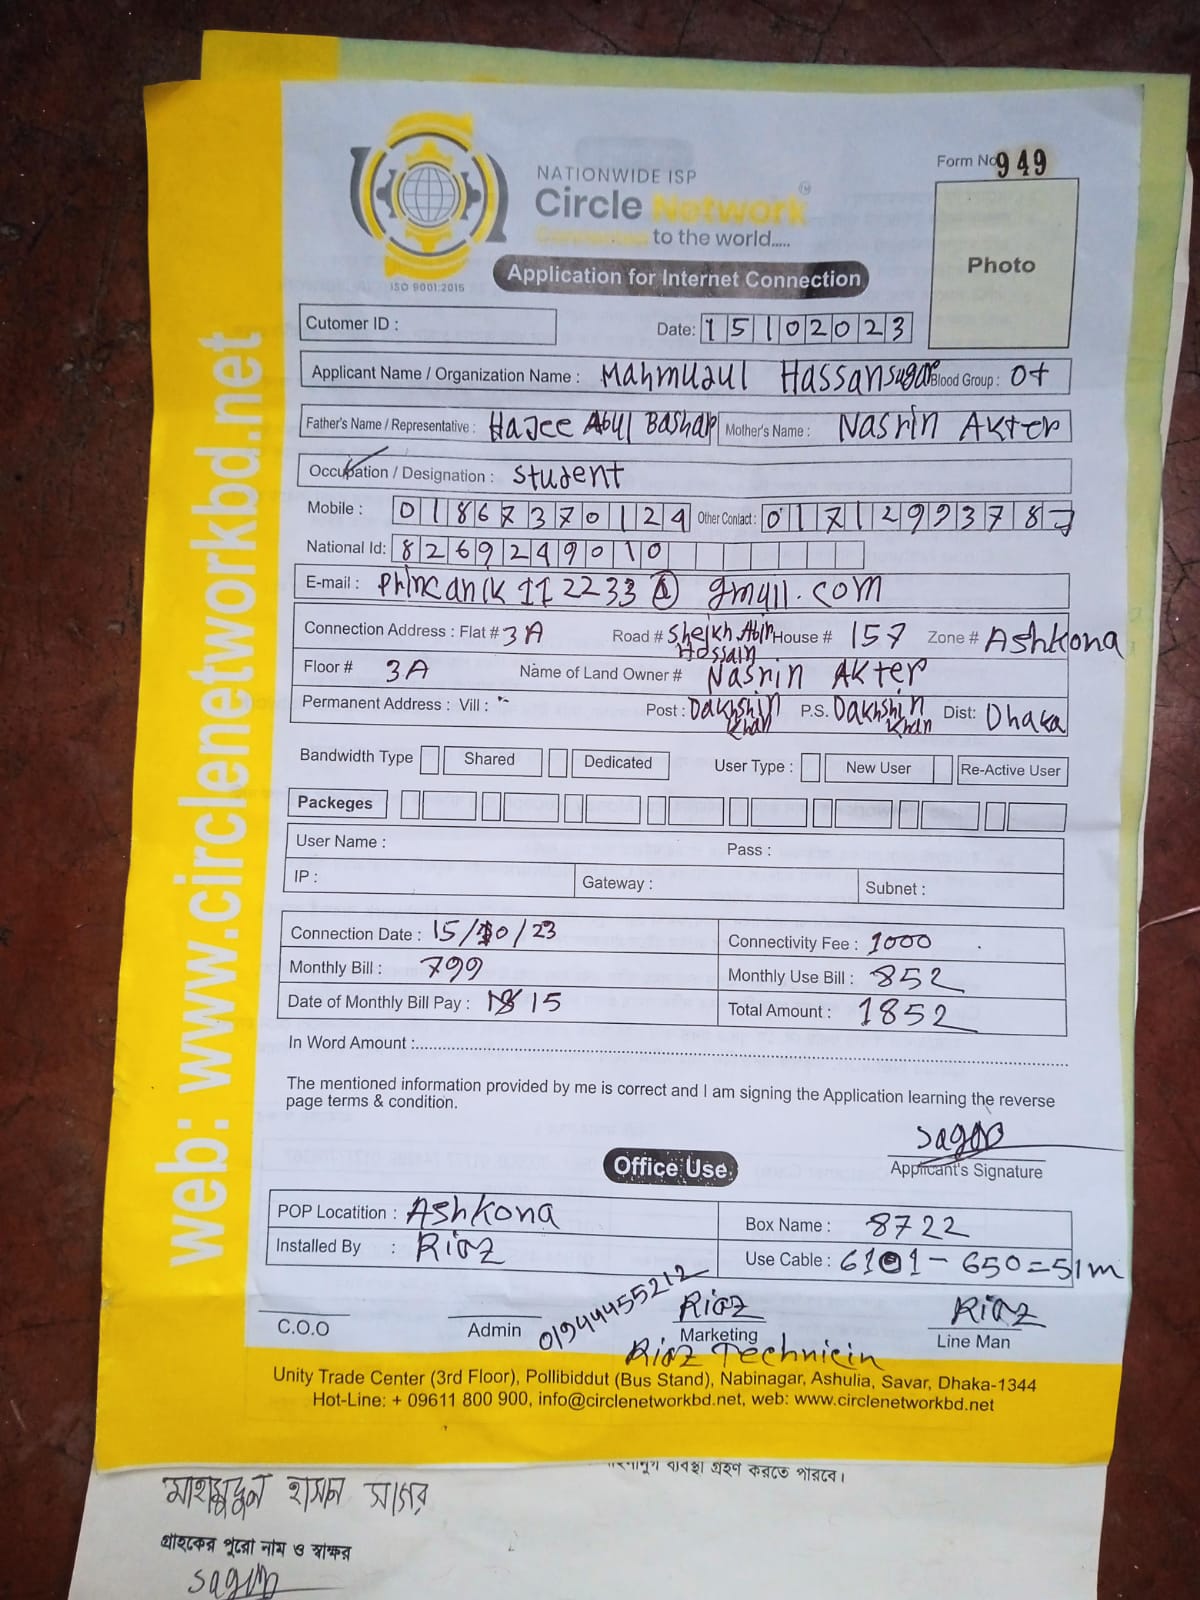 Form No 949
NATIONWIDE ISP
Circle Network
Connected to the world.....
ISO 9001:2015
Photo
Application for Internet Connection
Cutomer ID :
Date: 15102023
Applicant Name / Organization Name : Mahmudul Hassan sagor Blood Group : O+
Father's Name / Representative : Hajee Abul Bashar Mother's Name : Nasrin Akter
Occupation / Designation : student
Mobile : 01867370124 Other Contact : 01712993787
National Id: 8269249010
E-mail : princanik112233@gmail.com
Connection Address : Flat # 3A Road # Sheikh Abir Hossain House # 157 Zone # Ashkona
Floor # 3A Name of Land Owner # Nasrin Akter
Permanent Address : Vill : Post : Dakhshin Khan P.S. Dakhshin Khan Dist: Dhaka
Bandwidth Type Shared Dedicated User Type : New User Re-Active User
Packeges
User Name : Pass :
IP : Gateway : Subnet :
Connection Date : 15/10/23 Connectivity Fee : 1000
Monthly Bill : 799 Monthly Use Bill : 852
Date of Monthly Bill Pay : 15 Total Amount : 1852
In Word Amount :
The mentioned information provided by me is correct and I am signing the Application learning the reverse
page terms & condition.
sagor
Applicant's Signature
Office Use
POP Locatition : Ashkona Box Name : 8722
Installed By : Riaz Use Cable : 6101 - 650=51m
C.O.O Admin 01944455212 Riaz Marketing Riaz Line Man
Riaz Technicin
Unity Trade Center (3rd Floor), Pollibiddut (Bus Stand), Nabinagar, Ashulia, Savar, Dhaka-1344
Hot-Line: + 09611 800 900, info@circlenetworkbd.net, web: www.circlenetworkbd.net
web: www.circlenetworkbd.net
ব্যবস্থা গ্রহণ করতে পারবে।
মাহমুদুল হাসান সাগর
গ্রাহকের পুরো নাম ও স্বাক্ষর
sagor